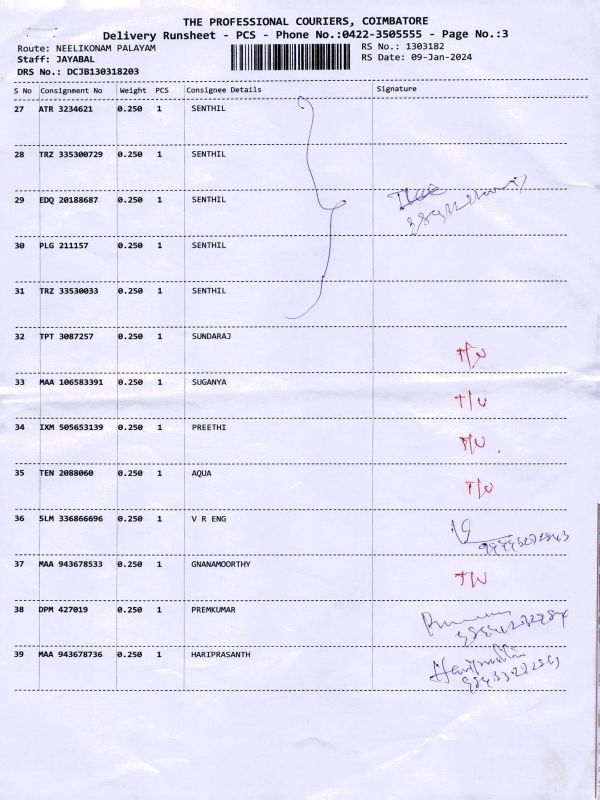 THE PROFESSIONAL COURIERS, COIMBATORE
Delivery Runsheet - PCS - Phone No.:0422-3505555 - Page No.:3
Route: NEELIKONAM PALAYAM RS No.: 1303182
Staff: JAYABAL RS Date: 09-Jan-2024
DRS No.: DCJB130318203
S No Consignment No Weight PCS Consignee Details Signature
27 ATR 3234621 0.250 1 SENTHIL
28 TRZ 335300729 0.250 1 SENTHIL
29 EDQ 20188687 0.250 1 SENTHIL
30 PLG 211157 0.250 1 SENTHIL
31 TRZ 33530033 0.250 1 SENTHIL
32 TPT 3087257 0.250 1 SUNDARAJ
33 MAA 106583391 0.250 1 SUGANYA T/W
34 IXM 505653139 0.250 1 PREETHI
35 TEN 2088060 0.250 1 AQUA
36 SLM 336866696 0.250 1 V R ENG
37 MAA 943678533 0.250 1 GNANAMOORTHY
38 DPM 427019 0.250 1 PREMKUMAR
39 MAA 943678736 0.250 1 HARIPRASANTH